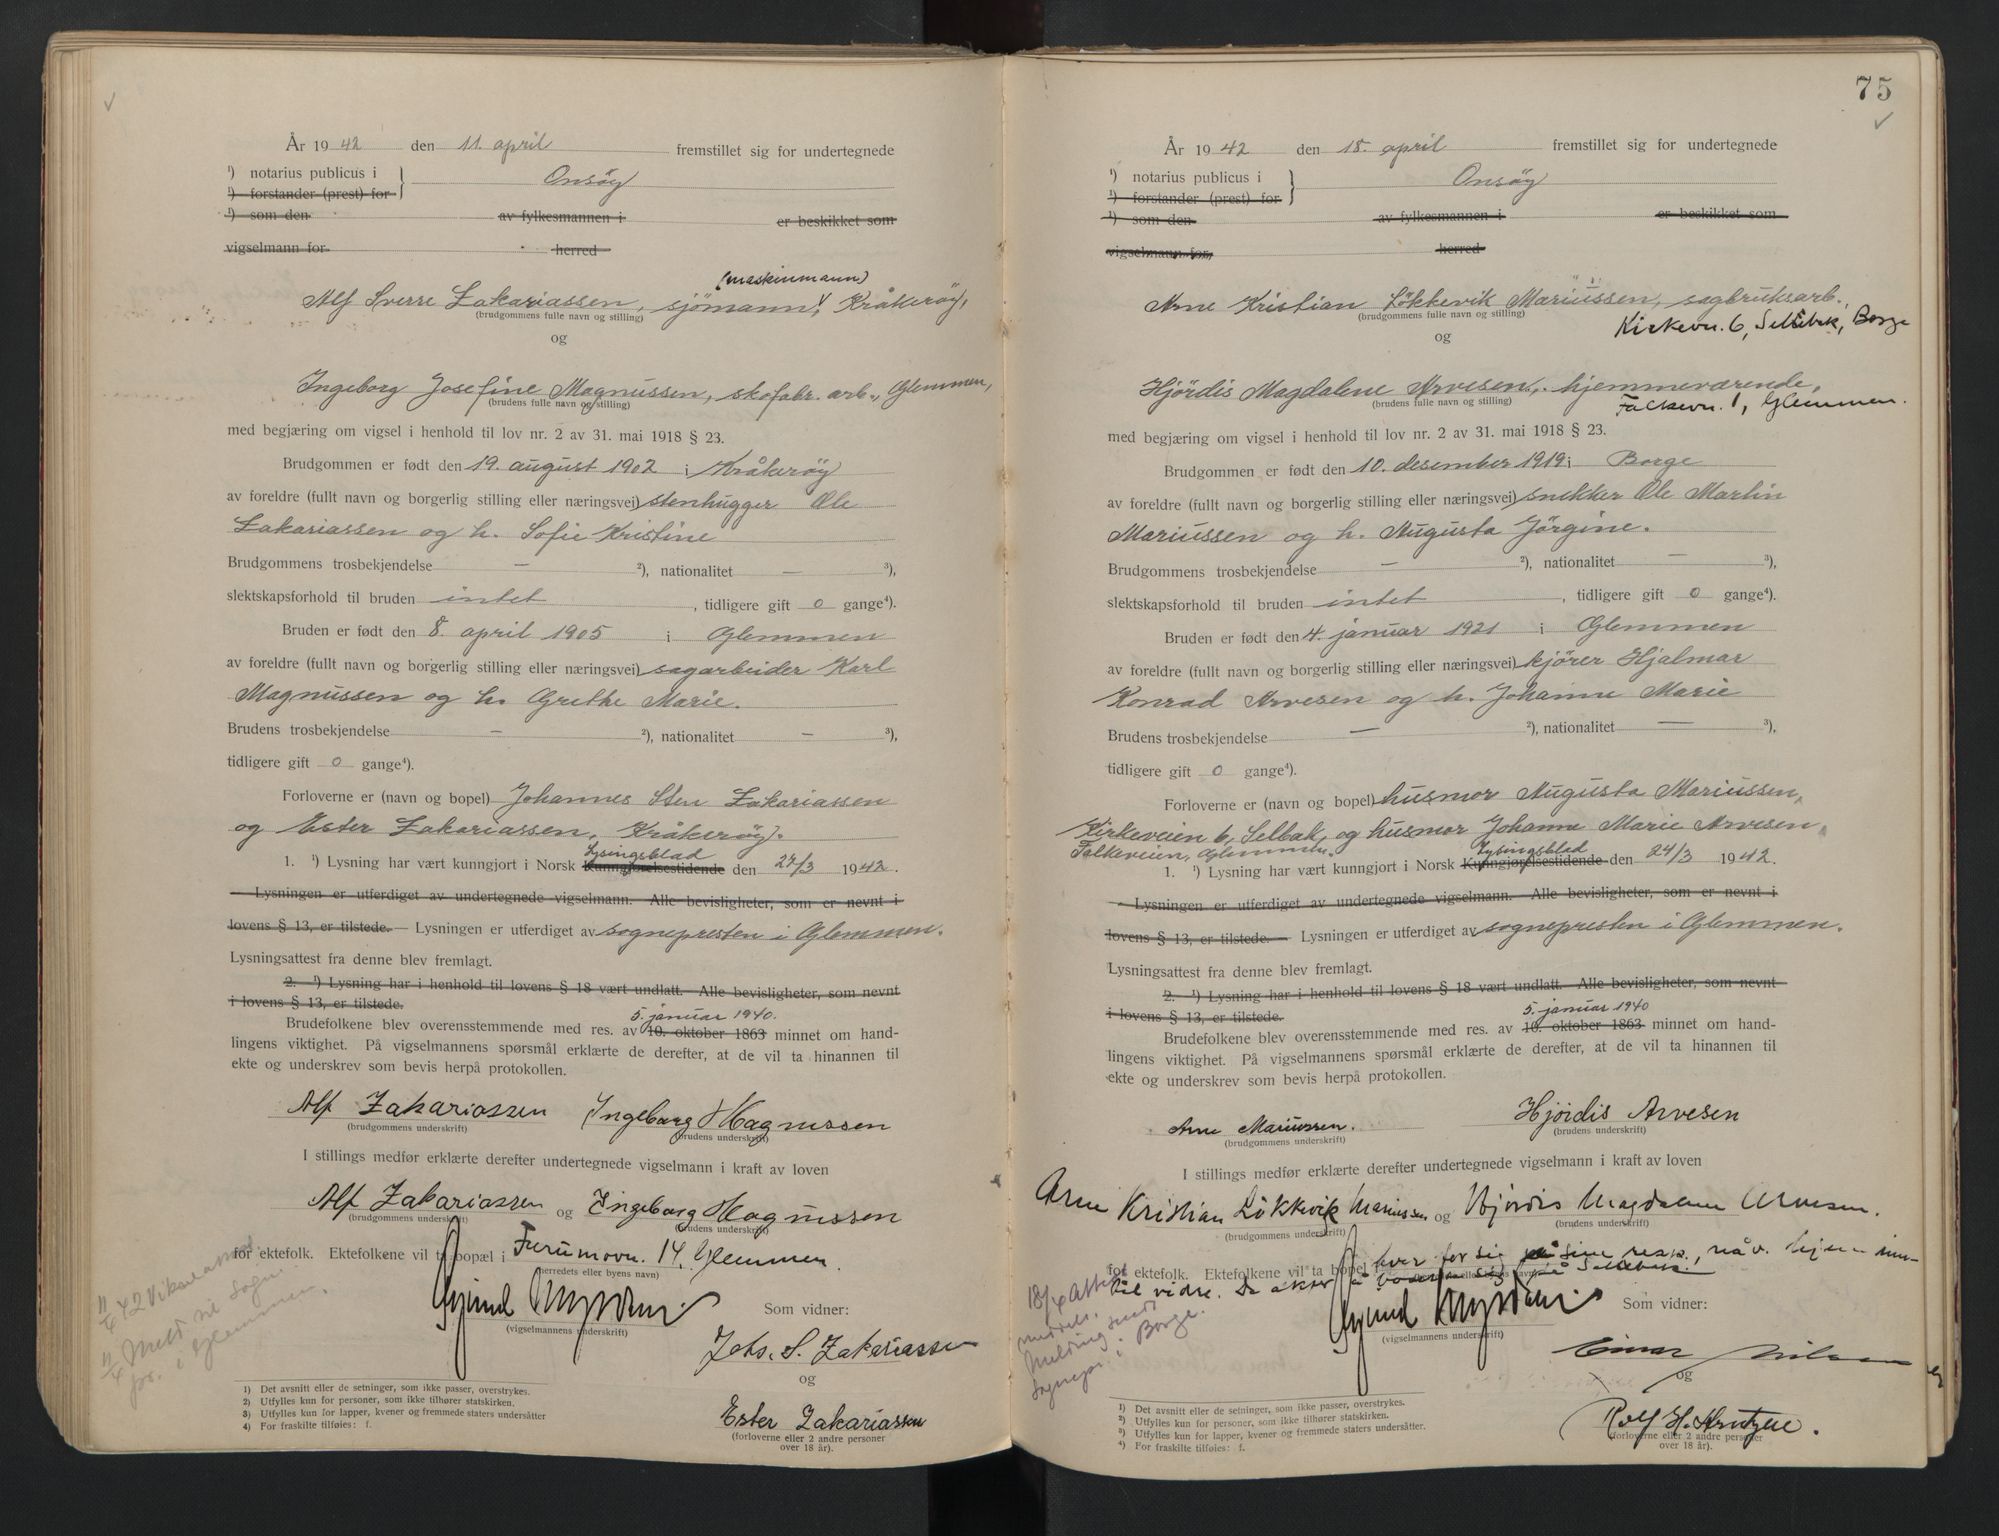 År 1942 den 11. april fremstillet sig for undertegnede
¹) notarius publicus i
Onsöy
¹) forstander (prest) for
¹) som den av fylkesmannen i er beskikket som
vigselmann for herred
(maskinmann)
Alf Sverre Zakariassen, sjömann, Kråkeröy,
(brudgommens fulle navn og stilling)
og
Ingeborg Josefine Magnussen, skofabr. arb., Glemmen,
(brudens fulle navn og stilling)
med begjæring om vigsel i henhold til lov nr. 2 av 31. mai 1918 § 23.
Brudgommen er født den 19. august 1902 i Kråkeröy
av foreldre (fullt navn og borgerlig stilling eller næringsvei) stenhugger Ole
Zakariassen og h. Sofie Kristine
Brudgommens trosbekjendelse — ²), nationalitet — ³),
slektskapsforhold til bruden intet, tidligere gift 0 gange⁴).
Bruden er født den 8. april 1905 i Glemmen
av foreldre (fullt navn og borgerlig stilling eller næringsvei) sagarbeider Karl
Magnussen og h. Grethe Marie.
Brudens trosbekjendelse — ²), nationalitet — ³),
tidligere gift 0 gange⁴).
Forloverne er (navn og bopel) Johannes Sten Zakariassen
og Ester Zakariassen, Kråkeröy.
Lysingsblad
1. ¹) Lysning har vært kunngjort i Norsk Kunngjørelsestidende den 27/3 1942.
Lysningen er utferdiget av undertegnede vigselmann. Alle bevisligheter, som er nevnt i
lovens § 13, er tilstede. — Lysningen er utferdiget av sognepresten i Glemmen.
Lysningsattest fra denne blev fremlagt.
2. ¹) Lysning har i henhold til lovens § 18 vært undlatt. Alle bevisligheter, som nevnt
i lovens § 13, er tilstede.
5. januar 1940.
Brudefolkene blev overensstemmende med res. av 10. oktober 1863 minnet om hand-
lingens viktighet. På vigselmannens spørsmål erklærte de derefter, at de vil ta hinannen til
ekte og underskrev som bevis herpå protokollen.
Alf Zakariassen Ingeborg Magnussen
(brudgommens underskrift) (brudens underskrift)
I stillings medfør erklærte derefter undertegnede vigselmann i kraft av loven
Alf Zakariassen og Ingeborg Magnussen
(brudgommens underskrift) (brudens underskrift)
for ektefolk. Ektefolkene vil ta bopæl i Furumovn. 14, Glemmen.
(herredets eller byens navn)
Som vidner:
(vigselmannens underskrift)
Johs. S. Zakariassen
og
Ester Zakariassen
(forloverne eller 2 andre personer
over 18 år).
11/4 42
11/4 Meld til sogne-
pr. i Glemmen.
1) Det avsnitt eller de setninger, som ikke passer, overstrykes.
2) Utfylles kun for personer, som ikke tilhører statskirken.
3) Utfylles kun for lapper, kvener og fremmede staters undersåtter
4) For fraskilte tilføies: f.
75
År 1942 den 18. april fremstillet sig for undertegnede
¹) notarius publicus i
Onsöy
¹) forstander (prest) for
¹) som den av fylkesmannen i er beskikket som
vigselmann for, herred
Arne Kristian Lökkevik Mariussen, sagbruksarb.,
(brudgommens fulle navn og stilling)
Kirkevn. 6, Selbak, Borge
og
Hjördis Magdalene Arvesen, hjemmeværende,
(brudens fulle navn og stilling)
Falkevn. 1, Glemmen.
med begjæring om vigsel i henhold til lov nr. 2 av 31. mai 1918 § 23.
Brudgommen er født den 10. desember 1919 i Borge
av foreldre (fullt navn og borgerlig stilling eller næringsvei) snekker Ole Martin
Mariussen og h. Augusta Jörgine.
Brudgommens trosbekjendelse — ²), nationalitet — ³),
slektskapsforhold til bruden intet, tidligere gift 0 gange⁴).
Bruden er født den 4. januar 1921 i Glemmen
av foreldre (fullt navn og borgerlig stilling eller næringsvei) kjörer Hjalmar
Konrad Arvesen og h. Johanne Marie
Brudens trosbekjendelse — ²), nationalitet — ³),
tidligere gift 0 gange⁴).
Forloverne er (navn og bopel) husmor Augusta Mariussen,
Kirkeveien 6, Selbak, og husmor Johanne Marie Arvesen,
Falkeveien, Glemmen.
Lysingsblad
1. ¹) Lysning har vært kunngjort i Norsk Kunngjørelsestidende den 24/3 1942.
Lysningen er utferdiget av undertegnede vigselmann. Alle bevisligheter, som er nevnt i
lovens § 13, er tilstede. — Lysningen er utferdiget av sognepresten i Glemmen.
Lysningsattest fra denne blev fremlagt.
2. ¹) Lysning har i henhold til lovens § 18 vært undlatt. Alle bevisligheter, som nevnt
i lovens § 13, er tilstede.
5. januar 1940
Brudefolkene blev overensstemmende med res. av 10. oktober 1863 minnet om hand-
lingens viktighet. På vigselmannens spørsmål erklærte de derefter, at de vil ta hinannen til
ekte og underskrev som bevis herpå protokollen.
Arne Mariussen. Hjördis Arvesen
(brudgommens underskrift) (brudens underskrift)
I stillings medfør erklærte derefter undertegnede vigselmann i kraft av loven
Arne Kristian Lökkevik Mariussen og Hjördis Magdalene Arvesen.
(brudgommens underskrift) (brudens underskrift)
for ektefolk. Ektefolkene vil ta bopel hver for sig på sine resp. nåv. hjem inn-
til videre. De akter å
Som vidner:
(vigselmannens underskrift)
Einar Nilsen
og
Rolf H.
(forloverne eller 2 andre personer
over 18 år).
18/4 Attest
meddelt.
Melding sendt
sognepr. i Borge.
¹) Det avsnitt eller de setninger, som ikke passer, overstrykes.
²) Utfylles kun for personer, som ikke tilhører statskirken.
³) Utfylles kun for lapper, kvener og fremmede staters undersåtter.
⁴) For fraskilte tilføies: f.